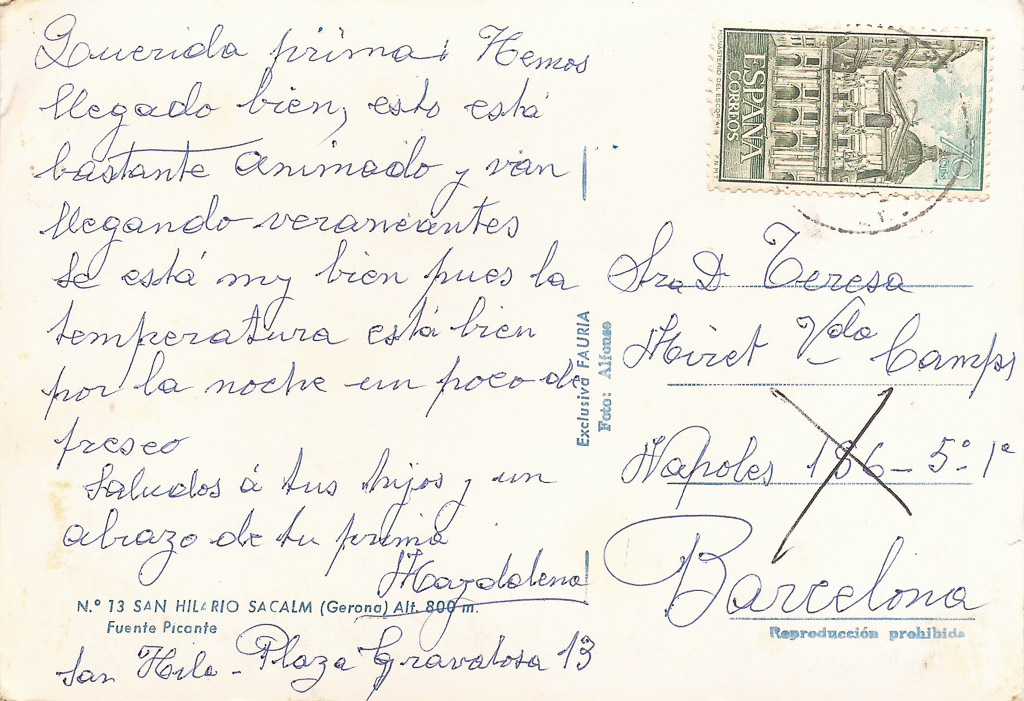 Querida prima: Hemos
llegado bien, esto está
bastante animado y van
llegando veraneantes
Se está my bien pues la
temperatura está bien
por la noche un poco de
fresco
Saludos á tus hijos y un
abrazo de tu prima
Magdalena
N.º 13 SAN HILARIO SACALM (Gerona) Alt. 800 m.
Fuente Picante
San Hila - Plaza Gravalosa 13
Exclusiva FAURIA
Foto: Alfonso
MONASTERIO DEL ESCORIAL
ESPAÑA
CORREOS
70 CTS
Sra Dª Teresa
Miret Vda Camps
Napoles 186 - 5º - 1ª
Barcelona
Reproducción prohibida